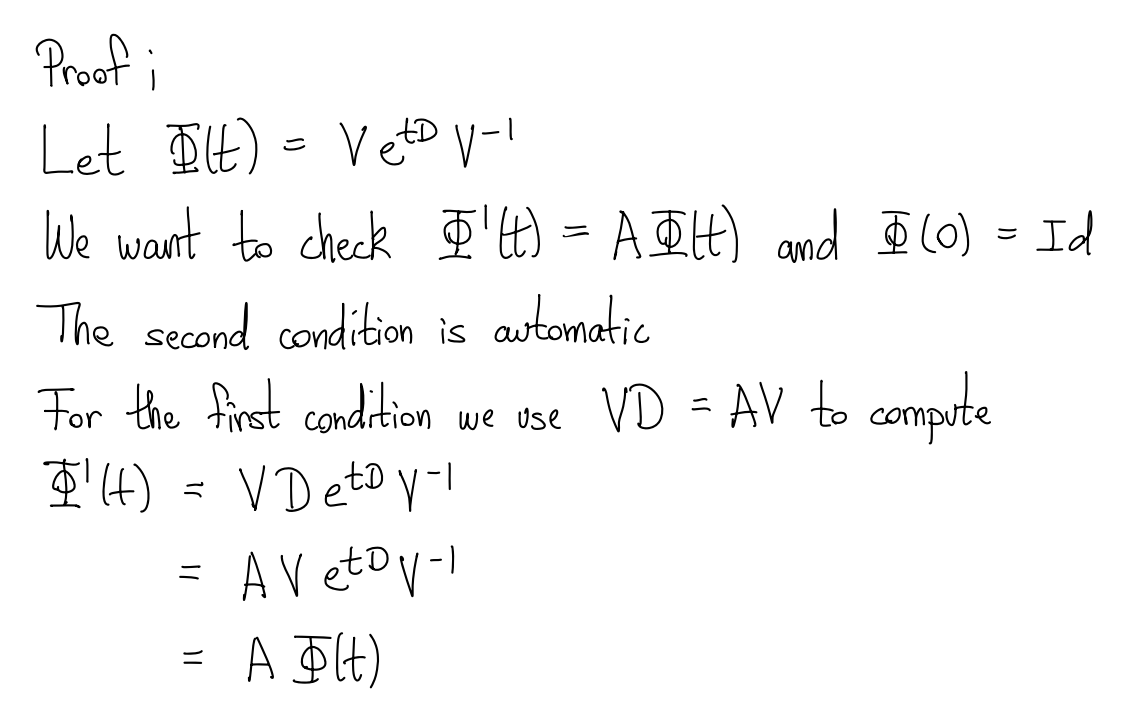 Proof ;
Let Φ(t) = V e^{tD} V^{-1}
We want to check Φ'(t) = AΦ(t) and Φ(0) = Id
The second condition is automatic
For the first condition we use VD = AV to compute
Φ'(t) = V D e^{tD} V^{-1}
= A V e^{tD} V^{-1}
= A Φ(t)